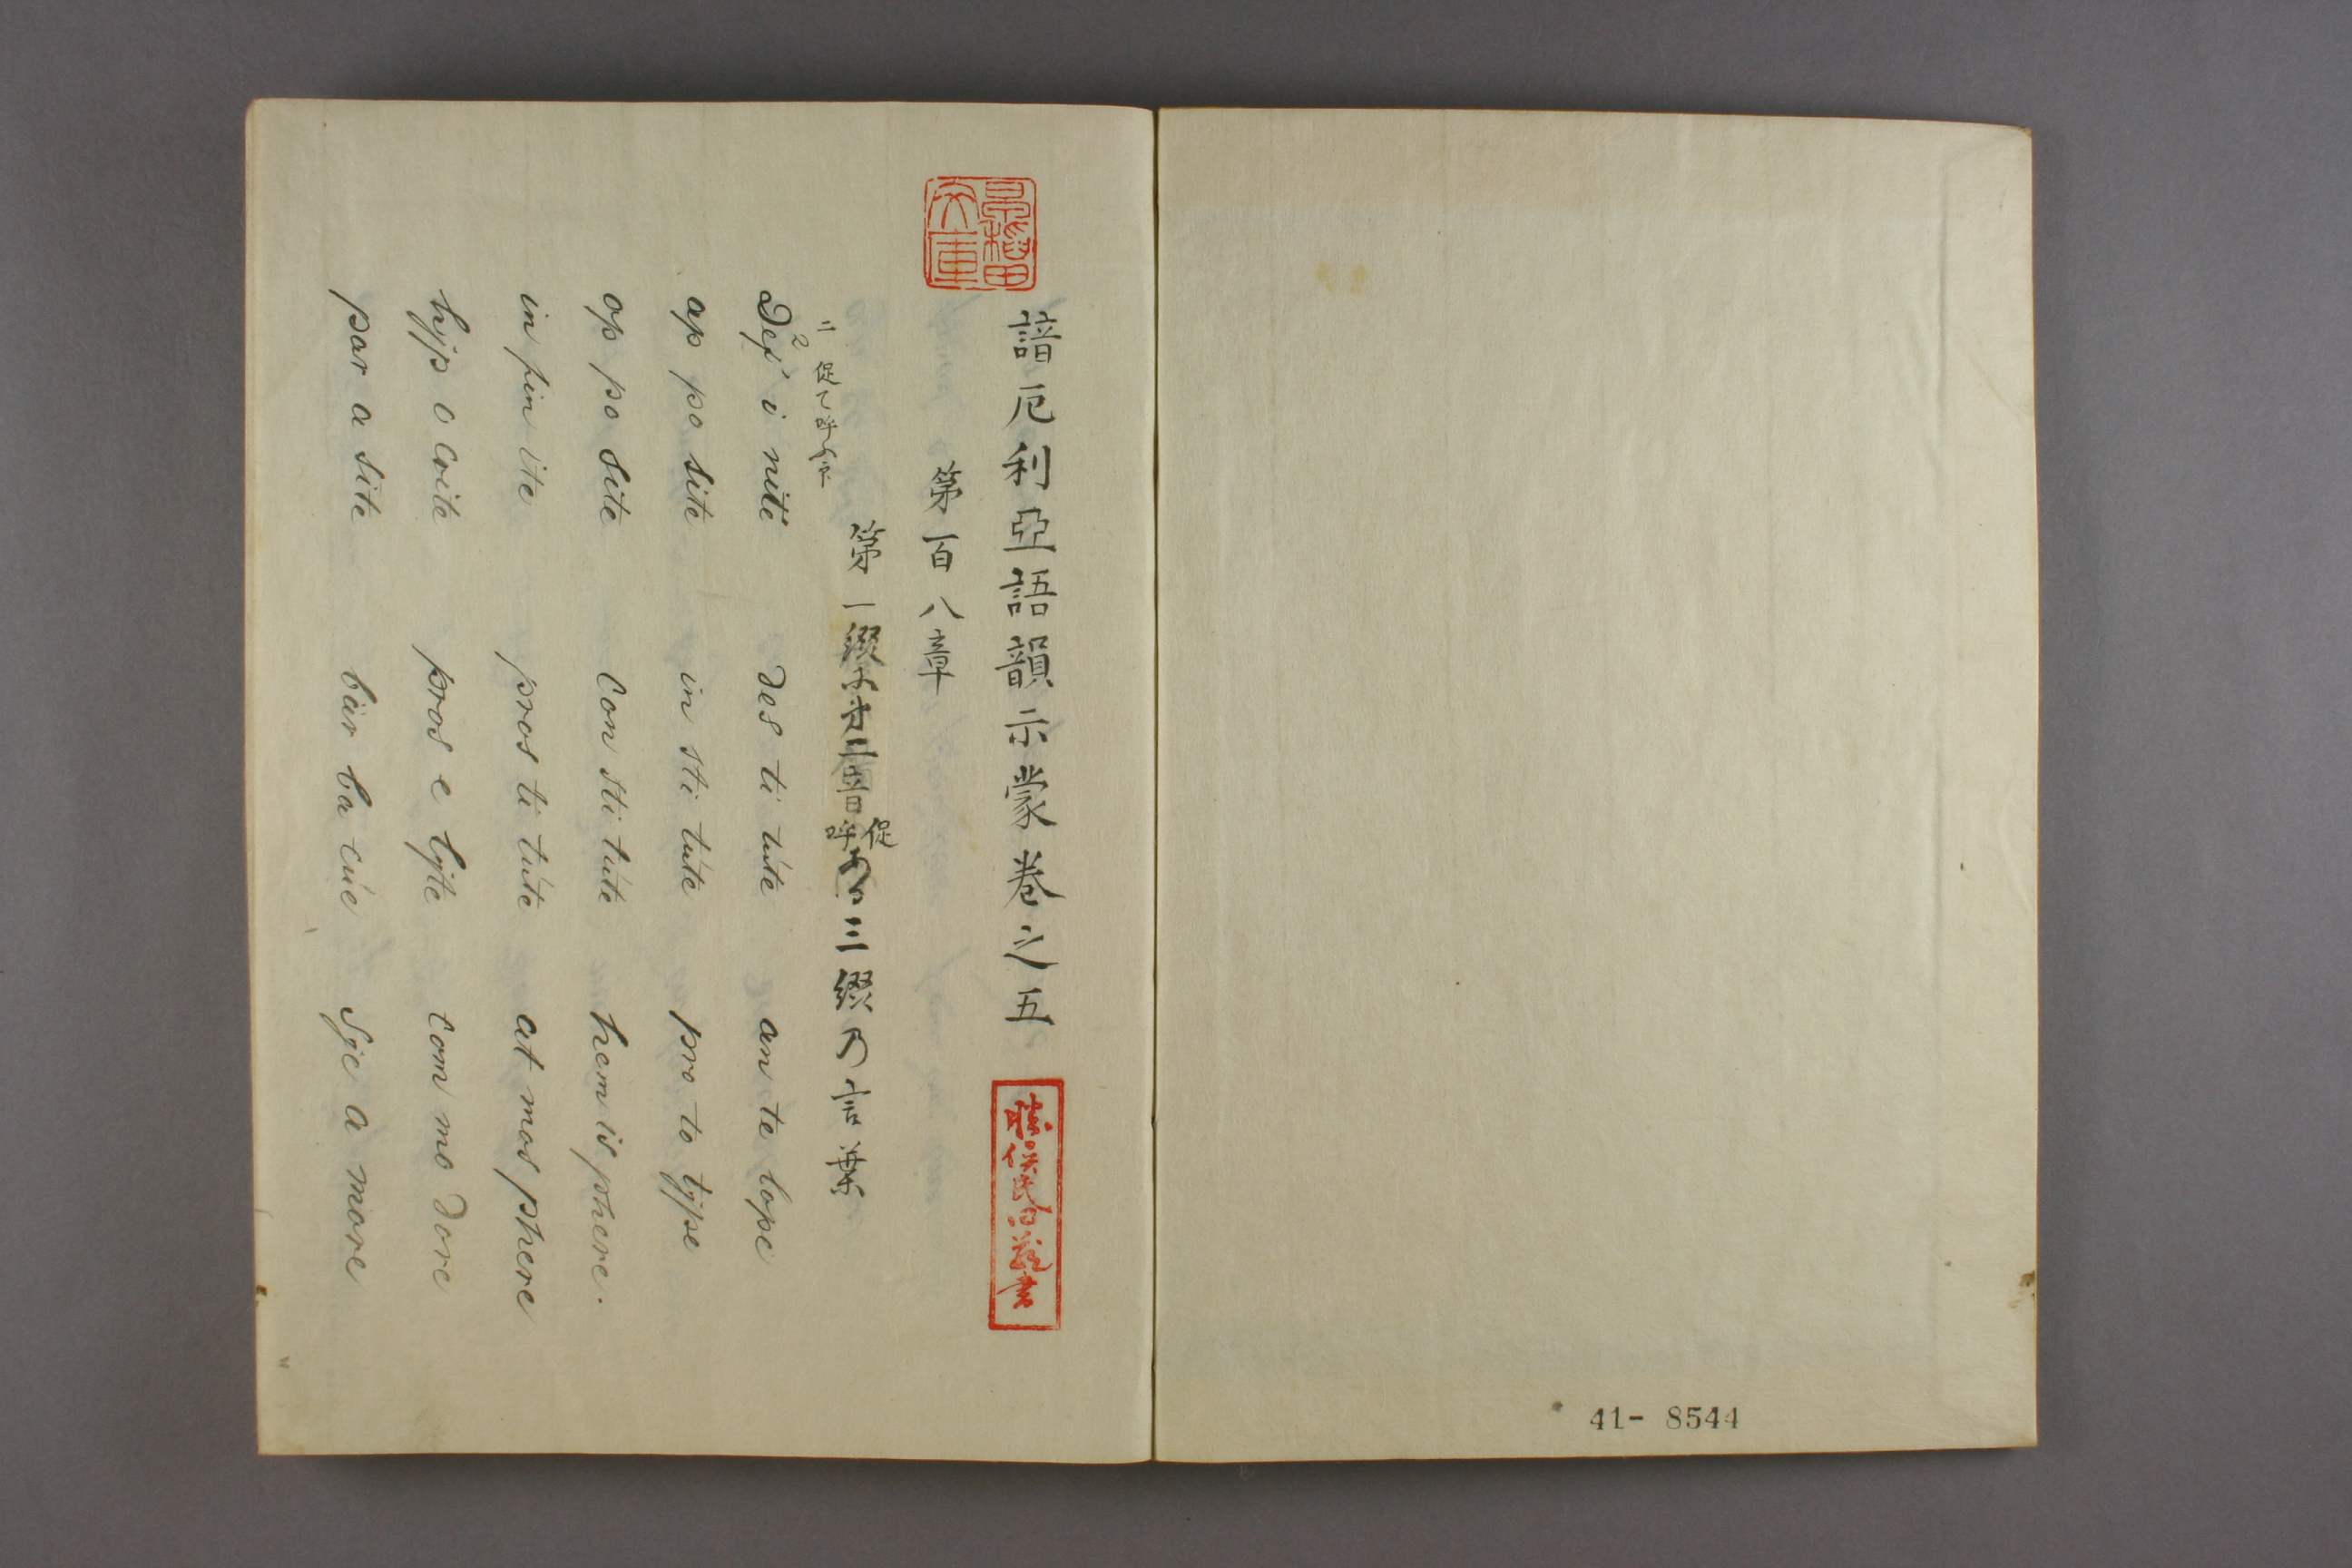 諳厄利亞語韻示蒙卷之五
第百八章
二 促て呼ふ音
第一綴
促呼
三綴乃言葉
Def i nite
des ti tute
an te lope
ap po site
in sti tute
pro to type
op po site
con sti tute
hem is phere.
in fin ite
pros ti tute
at mos phere
hyp o crite
pros e lyte
com mo dore
par a site
bar ba cue
syc a more
41- 8544